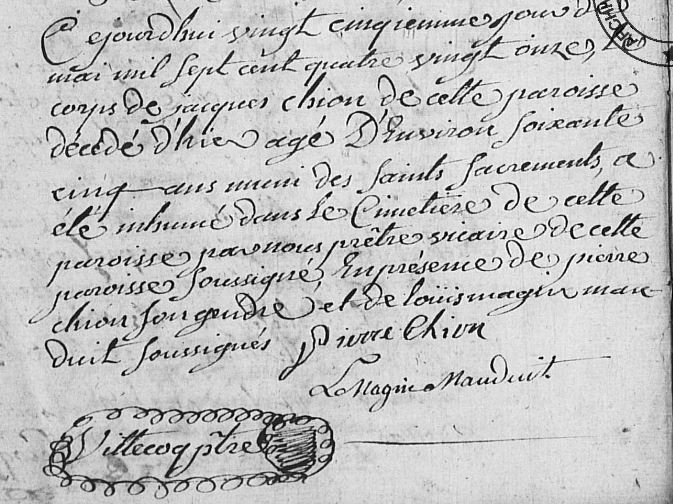 Cejourdhui vingt cinqiemme jour de
mai mil sept cent quatre vingt onze, le
corps de jacques chion de cette paroisse
décédé d'hier agé D'Environ soixante
cinq ans muni des saints sacrements, a
été inhumé dans Le Cimetière de cette
paroisse par nous prêtre vicaire de cette
paroisse soussigné, En présence de pierre
chion son gendre, et de loüis magin mau
duit soussignés Pierre Chion
L Magin Mauduit
Villecoq ptre
ARCH